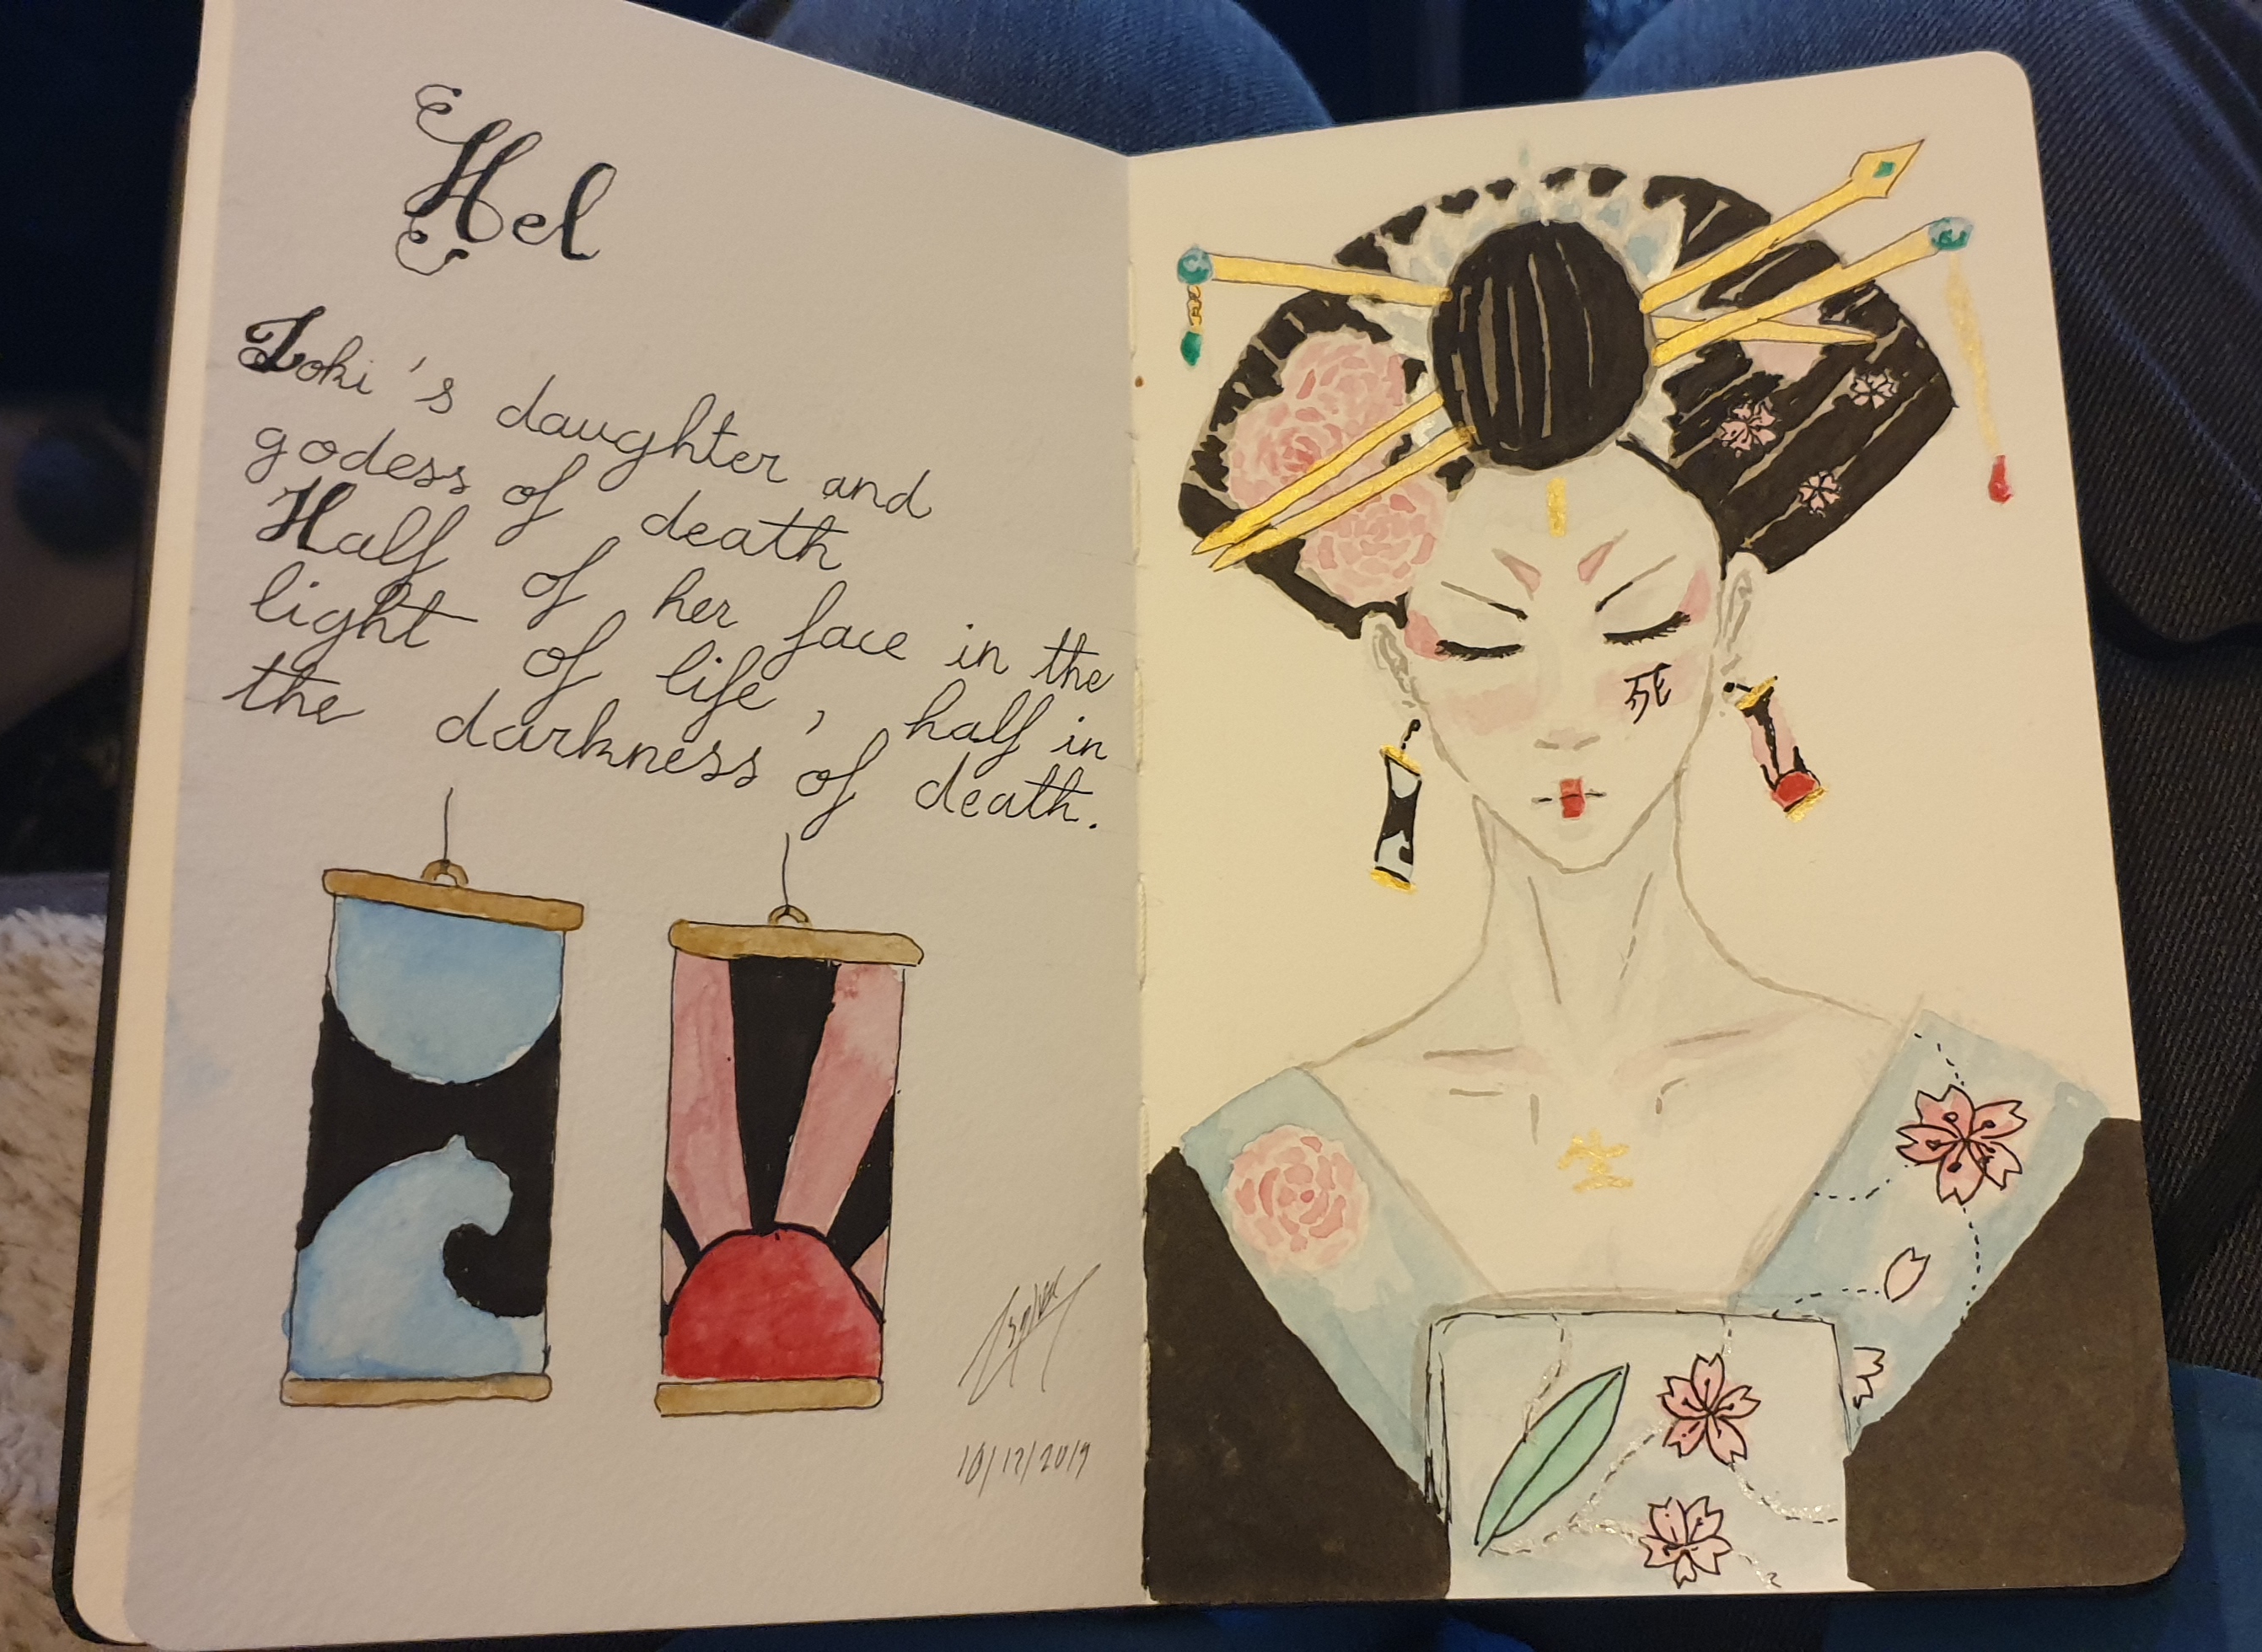 Hel
Loki's daughter and
godess of death
Half of her face in the
light of life, half in
the darkness of death.
10/12/2019
死
生